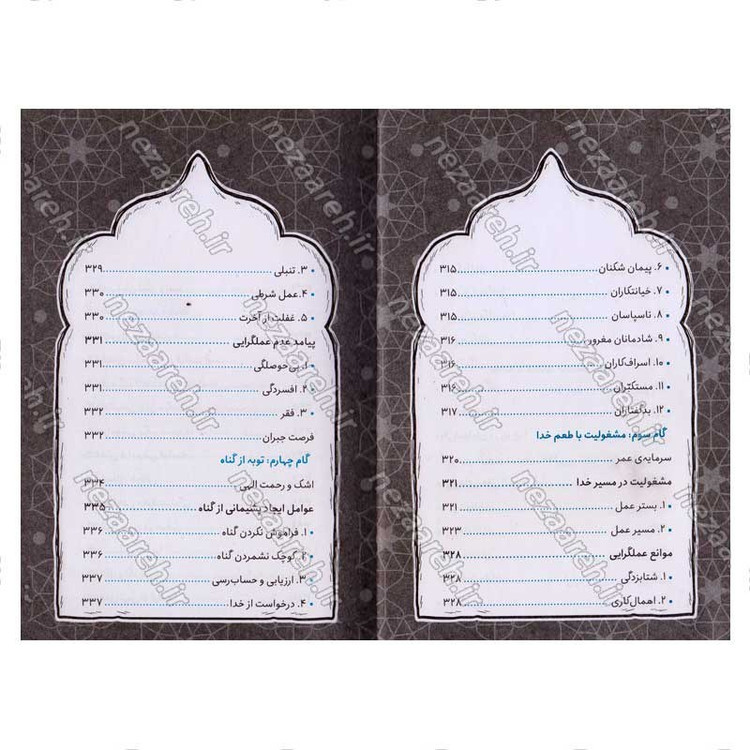 ۶. پیمان شکنان ۳۱۵
۷. خیانتکاران ۳۱۵
۸. ناسپاسان ۳۱۵
۹. شادمانان مغرور ۳۱۶
۱۰. اسراف‌کاران ۳۱۶
۱۱. مستکبران ۳۱۶
۱۲. بدگفتاران ۳۱۷
گام سوم: مشغولیت با طعم خدا
سرمایه‌ی عمر ۳۲۰
مشغولیت در مسیر خدا ۳۲۱
۱. بستر عمل ۳۲۱
۲. مسیر عمل ۳۲۳
موانع عملگرایی ۳۲۸
۱. شتابزدگی ۳۲۸
۲. اهمال‌کاری ۳۲۸
۳. تنبلی ۳۲۹
۴. عمل شرطی ۳۳۰
۵. غفلت از آخرت ۳۳۰
پیامد عدم عملگرایی ۳۳۱
۱. بی‌حوصلگی ۳۳۱
۲. افسردگی ۳۳۱
۳. فقر ۳۳۲
فرصت جبران ۳۳۲
گام چهارم: توبه از گناه
اشک و رحمت الهی ۳۳۴
عوامل ایجاد پشیمانی از گناه ۳۳۵
۱. فراموش نکردن گناه ۳۳۶
۲. کوچک نشمردن گناه ۳۳۶
۳. ارزیابی و حساب‌رسی ۳۳۷
۴. درخواست از خدا ۳۳۷
nezaareh.ir